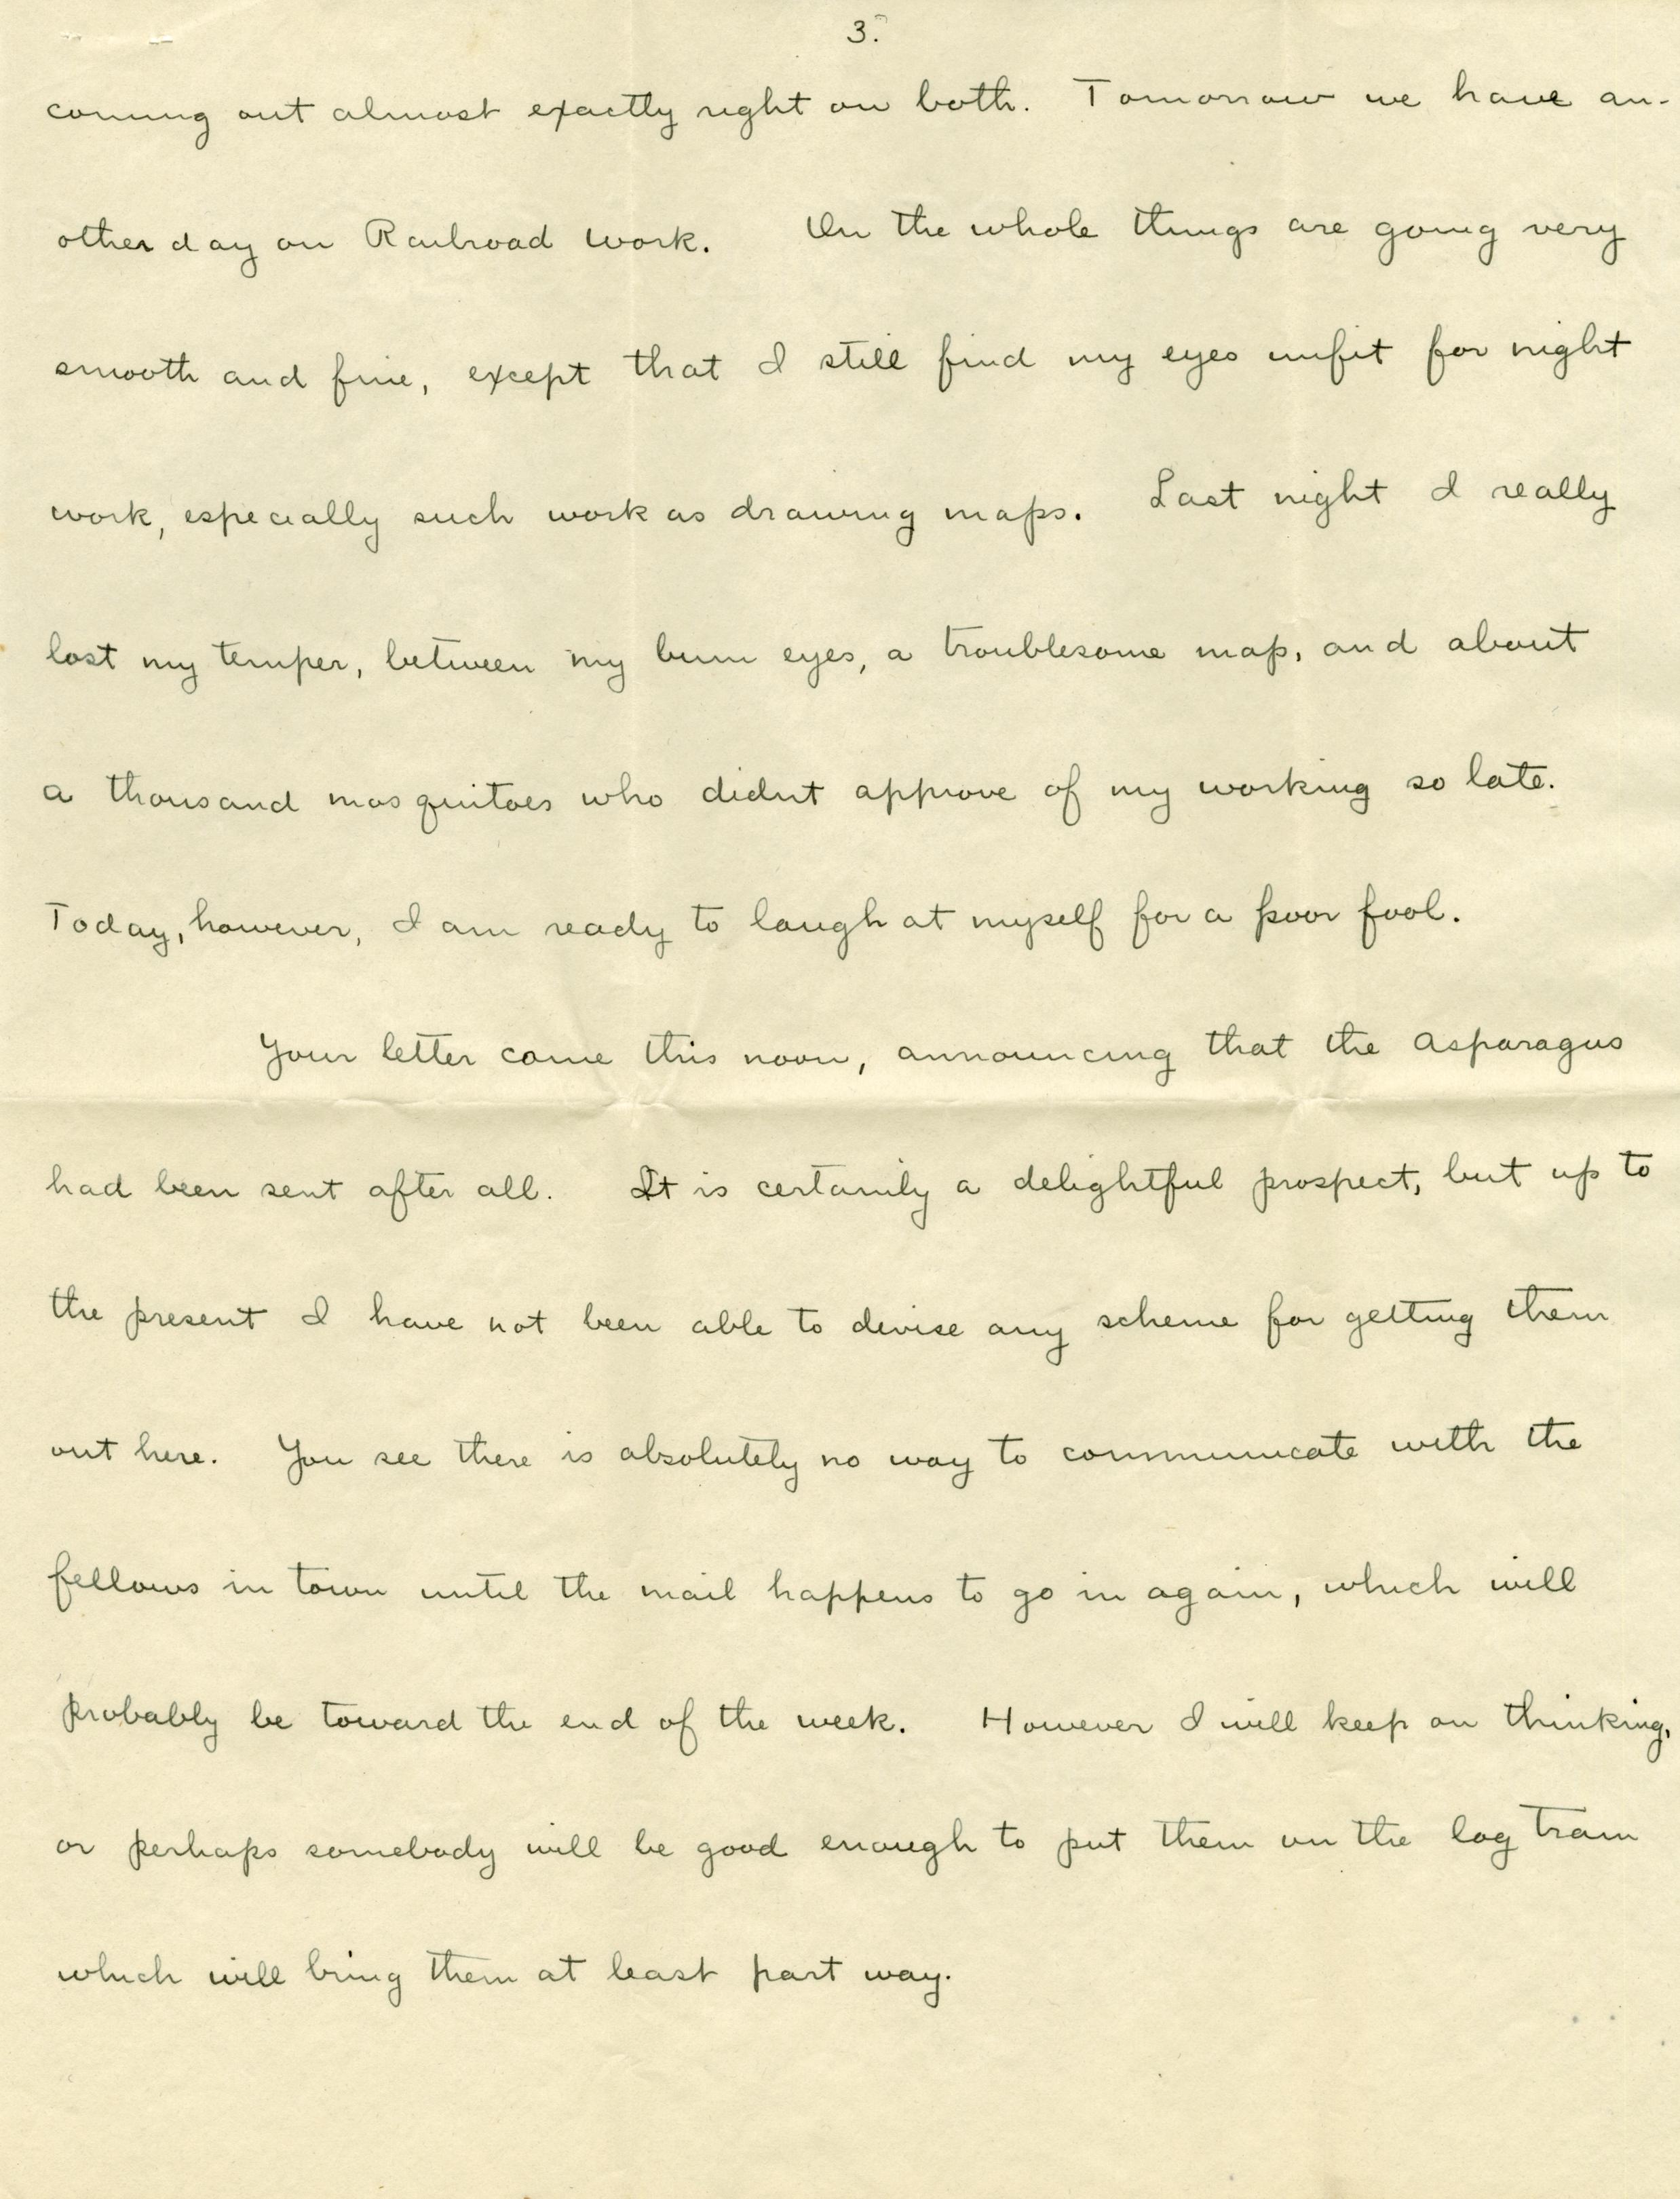 3.
coming out almost exactly right on both. Tomorrow we have an-
other day on Railroad work. On the whole things are going very
smooth and fine, except that I still find my eyes unfit for night
work, especially such work as drawing maps. Last night I really
lost my temper, between my bum eyes, a troublesome map, and about
a thousand mosquitoes who didnt approve of my working so late.
Today, however, I am ready to laugh at myself for a poor fool.
Your letter came this noon, announcing that the asparagus
had been sent after all. It is certainly a delightful prospect, but up to
the present I have not been able to devise any scheme for getting them
out here. You see there is absolutely no way to communicate with the
fellows in town until the mail happens to go in again, which will
probably be toward the end of the week. However I will keep on thinking,
or perhaps somebody will be good enough to put them on the log train
which will bring them at least part way.